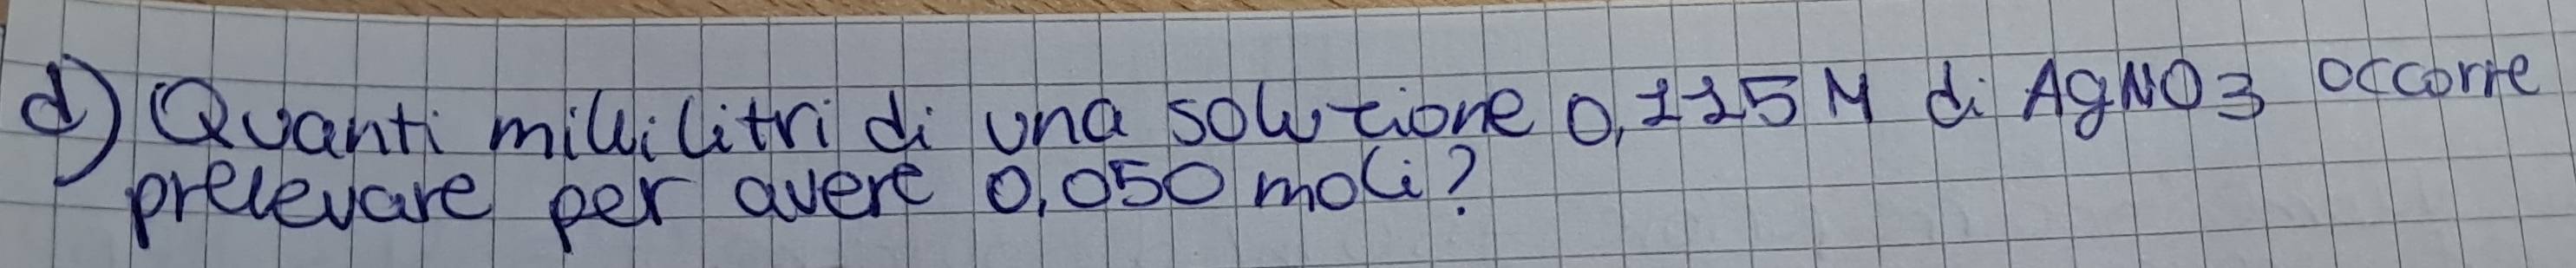 d) Quanti millilitri di una soluzione 0,115 M di AgNO3 occorre
prelevare per avere 0,050 moli?